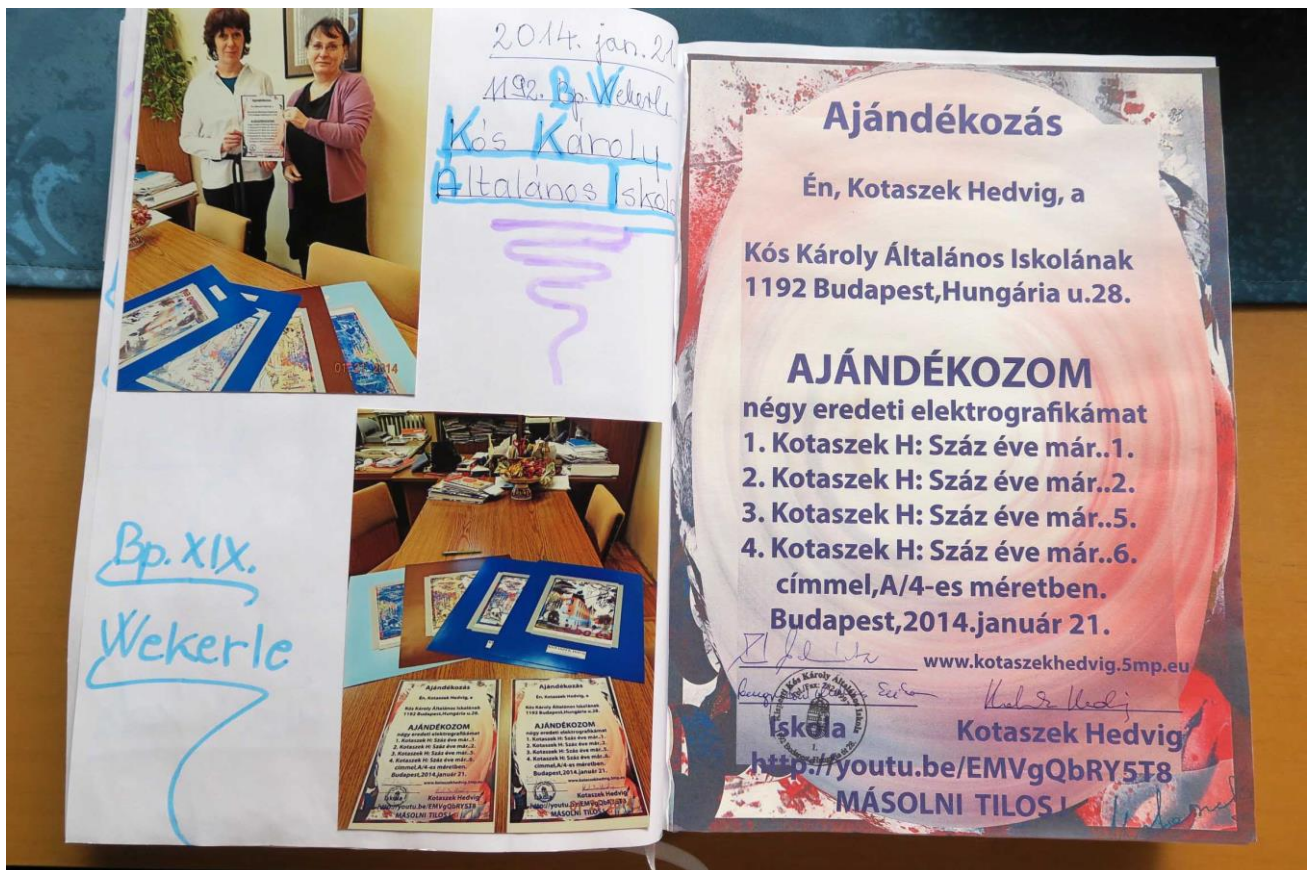 2014. jan. 21
1192. Bp. Wekerle
Kós Károly
Általános Iskola
Bp. XIX.
Wekerle
Ajándékozás
Én, Kotaszek Hedvig, a
Kós Károly Általános Iskolának
1192 Budapest,Hungária u.28.
AJÁNDÉKOZOM
négy eredeti elektrografikámat
1. Kotaszek H: Száz éve már..1.
2. Kotaszek H: Száz éve már..2.
3. Kotaszek H: Száz éve már..5.
4. Kotaszek H: Száz éve már..6.
címmel,A/4-es méretben.
Budapest,2014.január 21.
www.kotaszekhedvig.5mp.eu
Iskola Kotaszek Hedvig
http://youtu.be/EMVgQbRY5T8
MÁSOLNI TILOS !
Ajándékozás
Én, Kotaszek Hedvig, a
Kós Károly Általános Iskolának
1192 Budapest,Hungária u.28.
AJÁNDÉKOZOM
négy eredeti elektrografikámat
1. Kotaszek H: Száz éve már..1.
2. Kotaszek H: Száz éve már..2.
3. Kotaszek H: Száz éve már..5.
4. Kotaszek H: Száz éve már..6.
címmel,A/4-es méretben.
Budapest,2014.január 21.
Iskola Kotaszek Hedvig
http://youtu.be/EMVgQbRY5T8
MÁSOLNI TILOS !
Ajándékozás
Én, Kotaszek Hedvig, a
Kós Károly Általános Iskolának
1192 Budapest,Hungária u.28.
AJÁNDÉKOZOM
négy eredeti elektrografikámat
1. Kotaszek H: Száz éve már..1.
2. Kotaszek H: Száz éve már..2.
3. Kotaszek H: Száz éve már..5.
4. Kotaszek H: Száz éve már..6.
címmel,A/4-es méretben.
Budapest,2014.január 21.
Iskola Kotaszek Hedvig
http://youtu.be/EMVgQbRY5T8
MÁSOLNI TILOS !